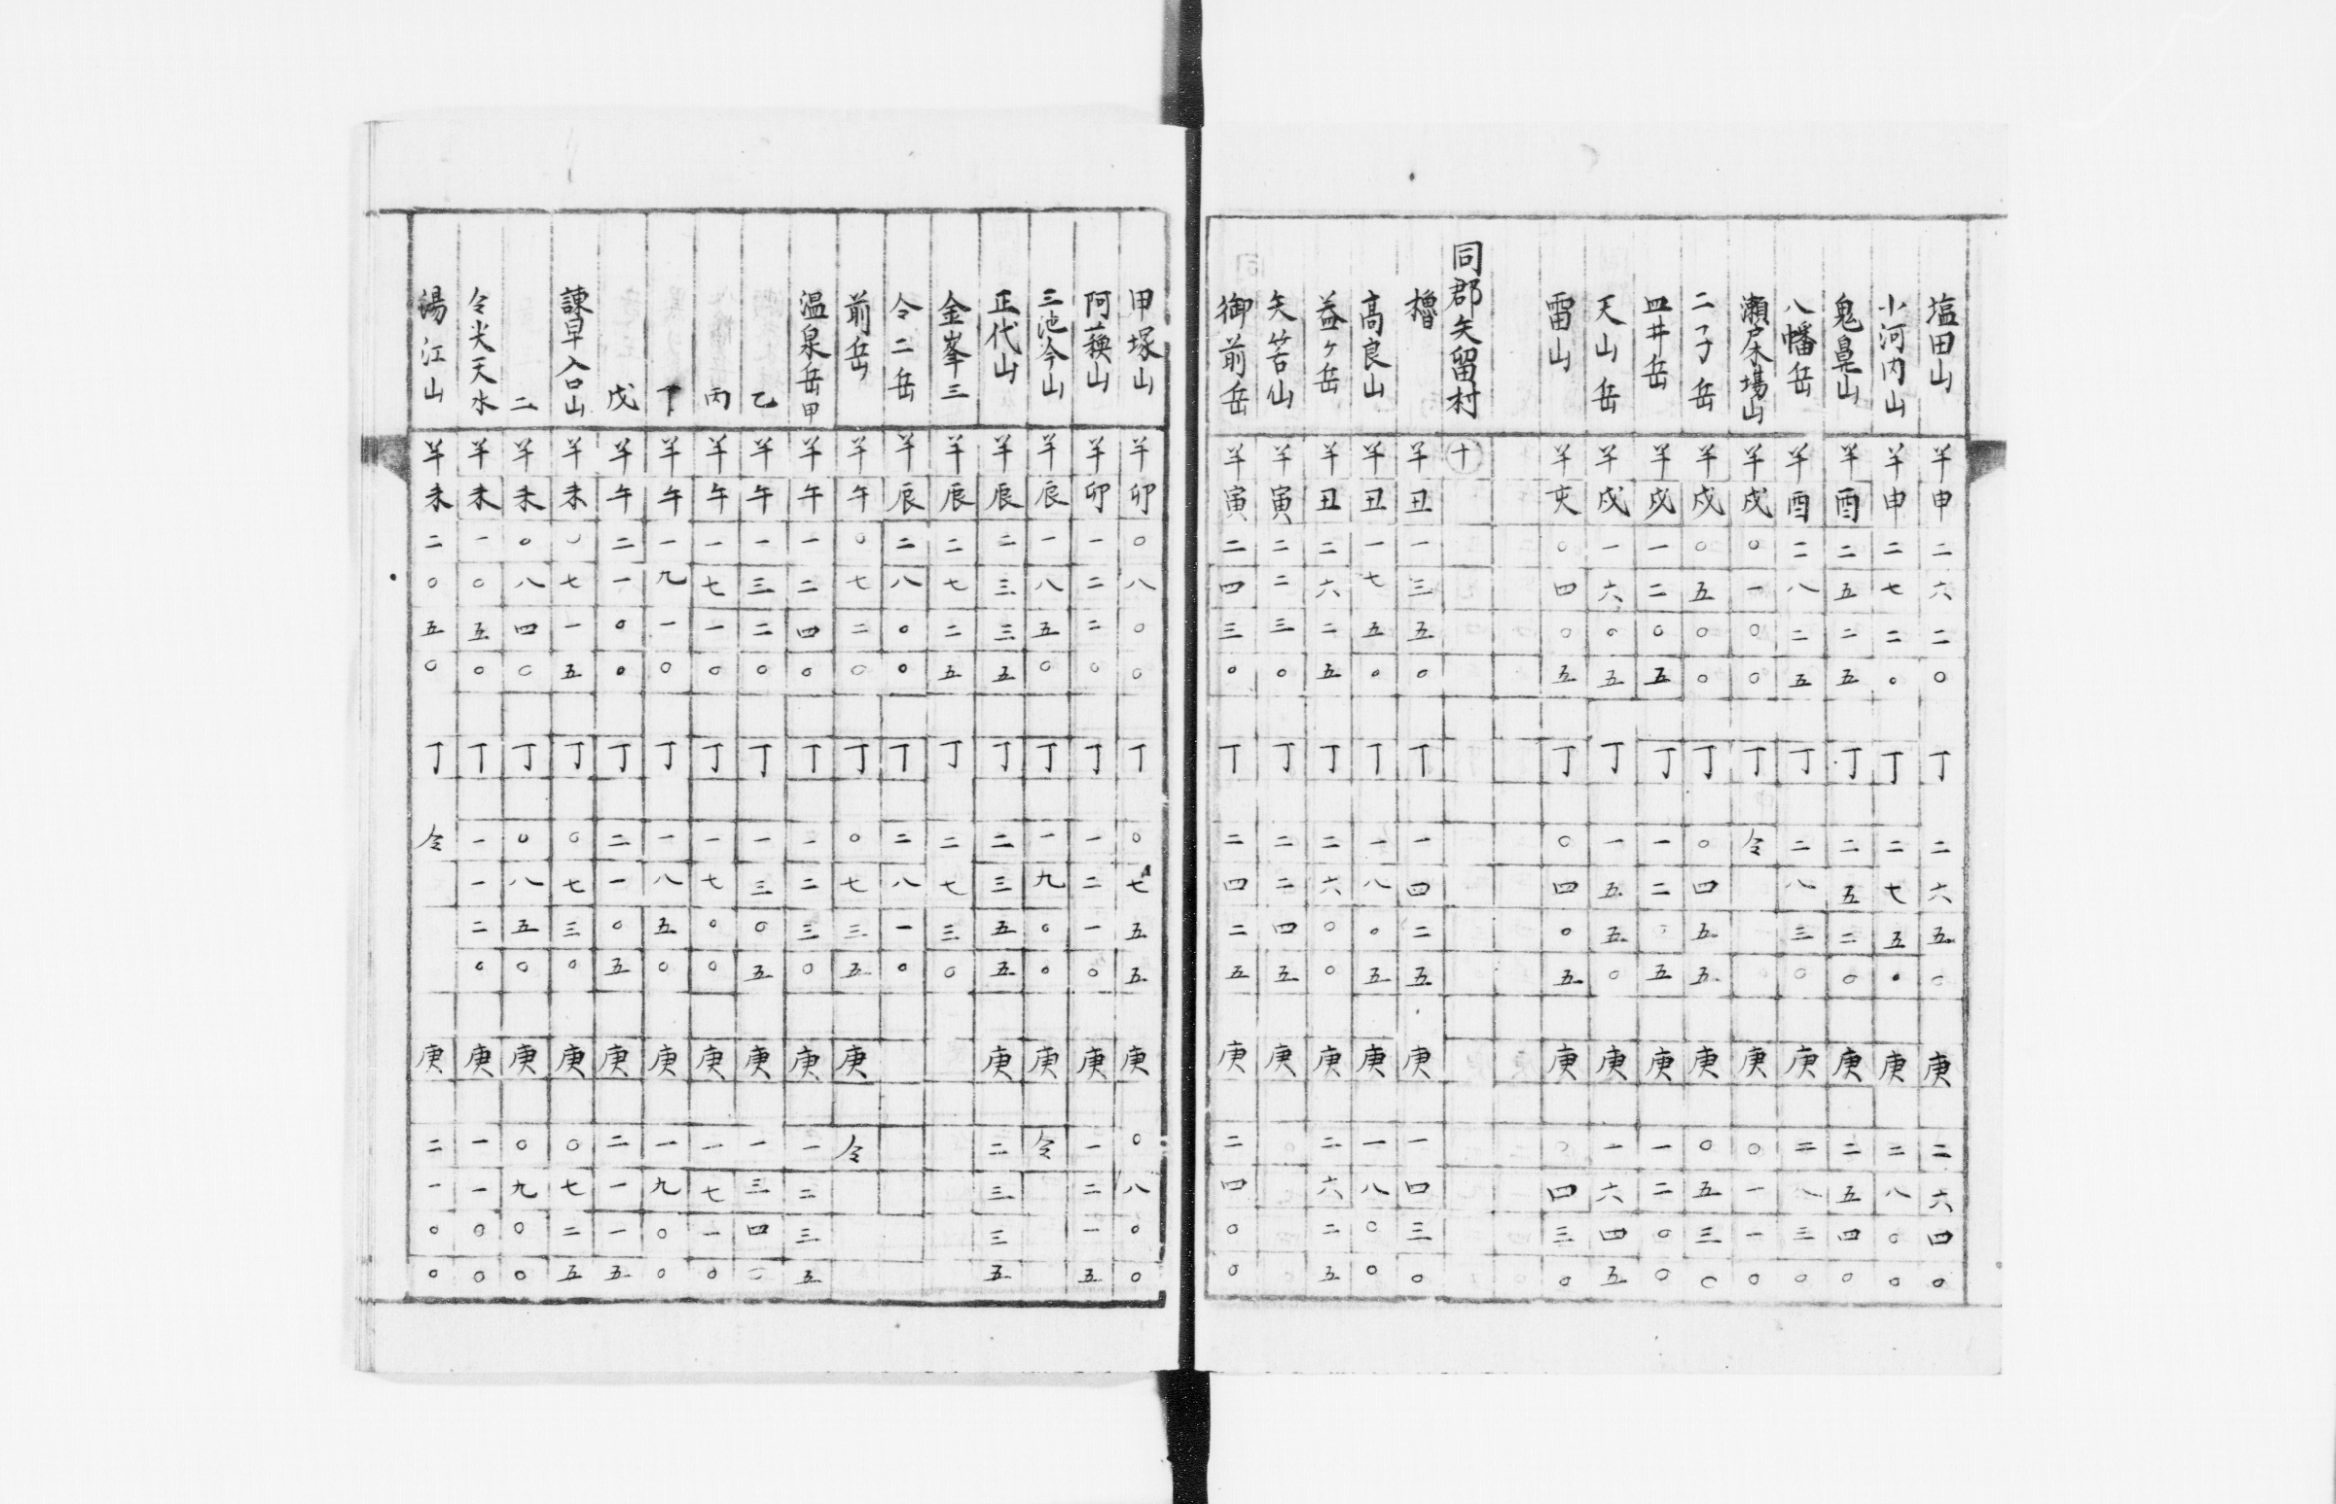 塩田山 半申 二六二〇 丁 二六五〇 庚 二六四〇
小河内山 半申 二七二〇 丁 二七五〇 庚 二八〇〇
鬼鼻山 半酉 二五二五 丁 二五二〇 庚 二五四〇
八幡岳 半酉 二八二五 丁 二八三〇 庚 二八三〇
瀬戸木場山 半戌 〇一〇〇 丁 仝 庚 〇一一〇
二子岳 半戌 〇五〇〇 丁 〇四五五 庚 〇五三〇
皿井岳 半戌 一二〇五 丁 一二〇五 庚 一二〇〇
天山岳 半戌 一六〇五 丁 一五五〇 庚 一六四五
雷山 半亥 〇四〇五 丁 〇四〇五 庚 〇四三〇
同郡矢留村 十
櫓 半丑 一三五〇 丁 一四二五 庚 一四三〇
高良山 半丑 一七五〇 丁 一八〇五 庚 一八〇〇
益ヶ岳 半丑 二六二五 丁 二六〇〇 庚 二六二五
矢筈山 半寅 二二三〇 丁 二二四五 庚
御前岳 半寅 二四三〇 丁 二四二五 庚 二四〇〇
甲塚山 半卯 〇八〇〇 丁 〇七五五 庚 〇八〇〇
阿蘓山 半卯 一二二〇 丁 一二一〇 庚 一二一五
三池今山 半辰 一八五〇 丁 一九〇〇 庚 仝
正代山 半辰 二三三五 丁 二三五五 庚 二三三五
金峯三 半辰 二七二五 丁 二七三〇
仝二岳 半辰 二八〇〇 丁 二八一〇
前岳 半午 〇七二〇 丁 〇七三五 庚 仝
温泉岳甲 半午 一二四〇 丁 一二三〇 庚 一二三五
乙 半午 一三二〇 丁 一三〇五 庚 一三四〇
丙 半午 一七一〇 丁 一七〇〇 庚 一七一〇
丁 半午 一九一〇 丁 一八五〇 庚 一九〇〇
戊 半午 二一〇〇 丁 二一〇五 庚 二一一五
諌早入口山 半未 〇七一五 丁 〇七三〇 庚 〇七二五
二 半未 〇八四〇 丁 〇八五〇 庚 〇九〇〇
仝尖天水 半未 一〇五〇 丁 一一二〇 庚 一一〇〇
湯江山 半未 二〇五〇 丁 仝 庚 二一〇〇